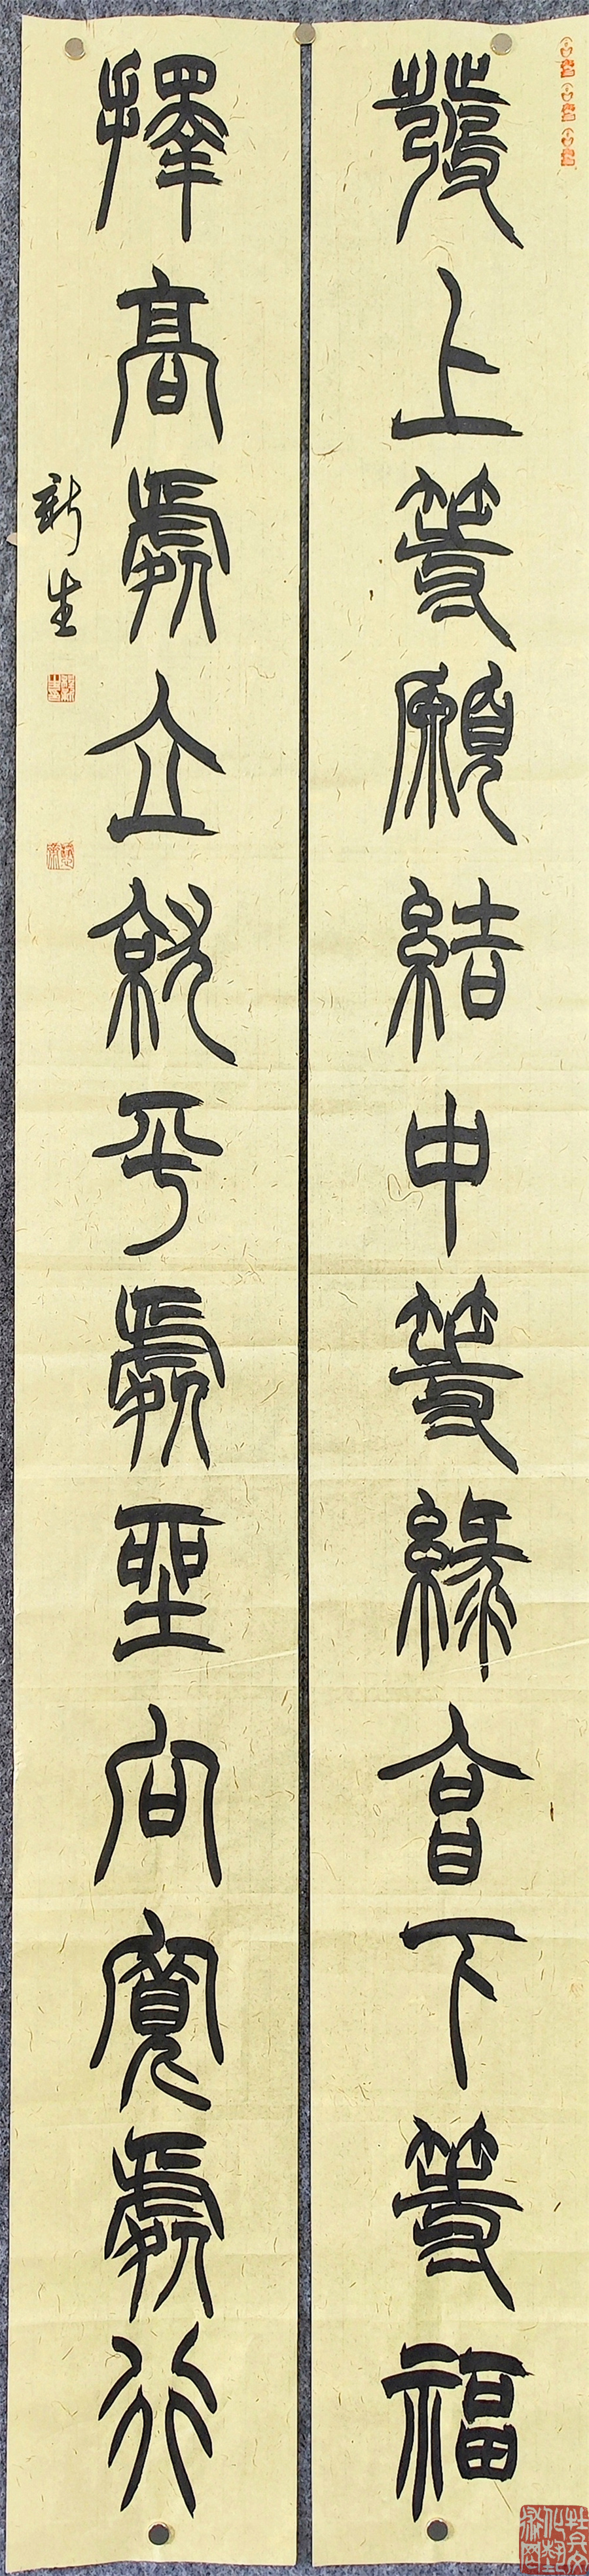 發上等願結中等緣享下等福
擇高處立就平處坐向寬處行
新生